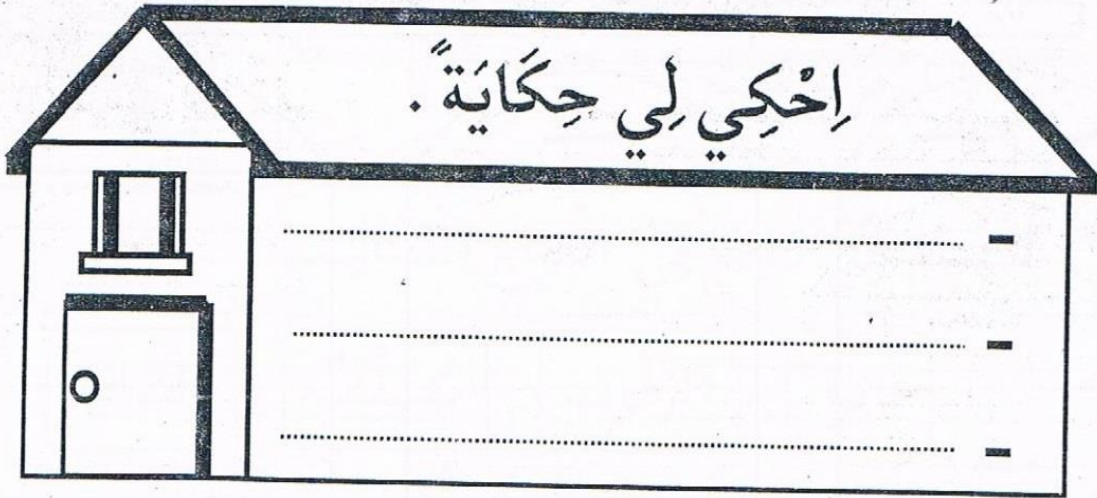 اِحْكِي لِي حِكَايَةً .
-
-
-